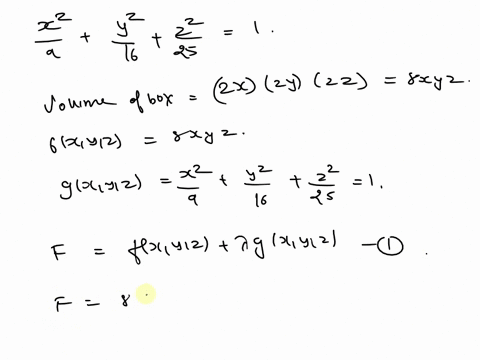 x²/9 + y²/16 + z²/25 = 1.
Volume of box = (2x) (2y) (2z) = 8xyz.
f(x,y,z) = 8xyz.
g(x,y,z) = x²/9 + y²/16 + z²/25 = 1.
F = f(x,y,z) + λg(x,y,z) — ①.
F = 8